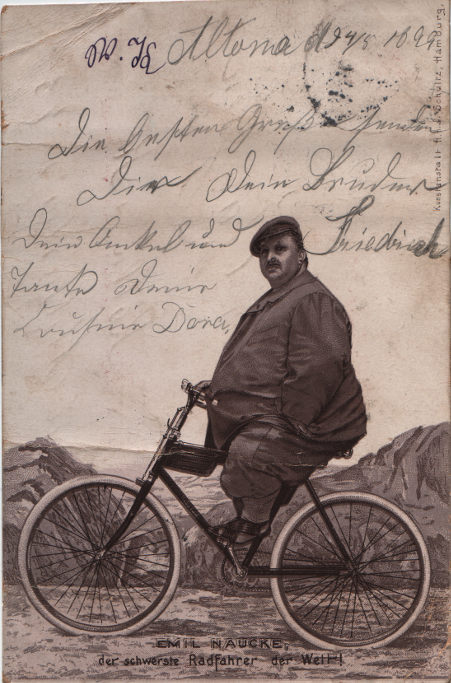 W. K. Altona d. 24/5 1899
Die besten Grüße senden
Dir Dein Bruder
Dein Onkel und Friedrich
Tante Deine
Cousine Dora.
Kunstanstalt Schultz, Hamburg.
EMIL NAUCKE,
der schwerste Radfahrer der Welt!